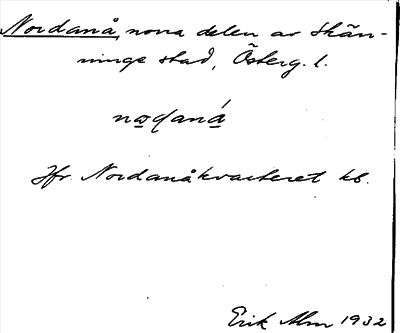 Nordanå, norra delen av Skän-
ninge stad, Österg. l.
Jfr. Nordanåkvarteret kb.
Erik Alm 1932